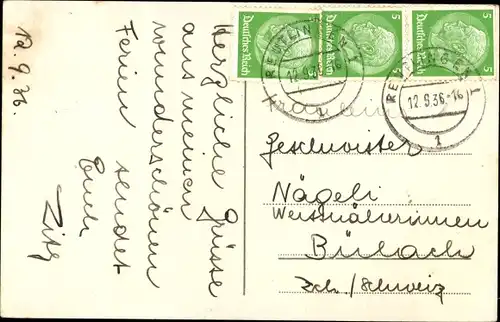 12.9.36.
Herzliche Grüsse
aus meinen
wunderschönen
Ferien sendet
Euch
5
5
5
Deutsches Reich
Deutsches Reich
Deutsches Reich
REUTLINGEN
12.9.36.-16
1
REUTLINGEN
12.9.36.-16
1
Fräulein
Geschwister
Nägeli
Bülach
Zch./Schweiz